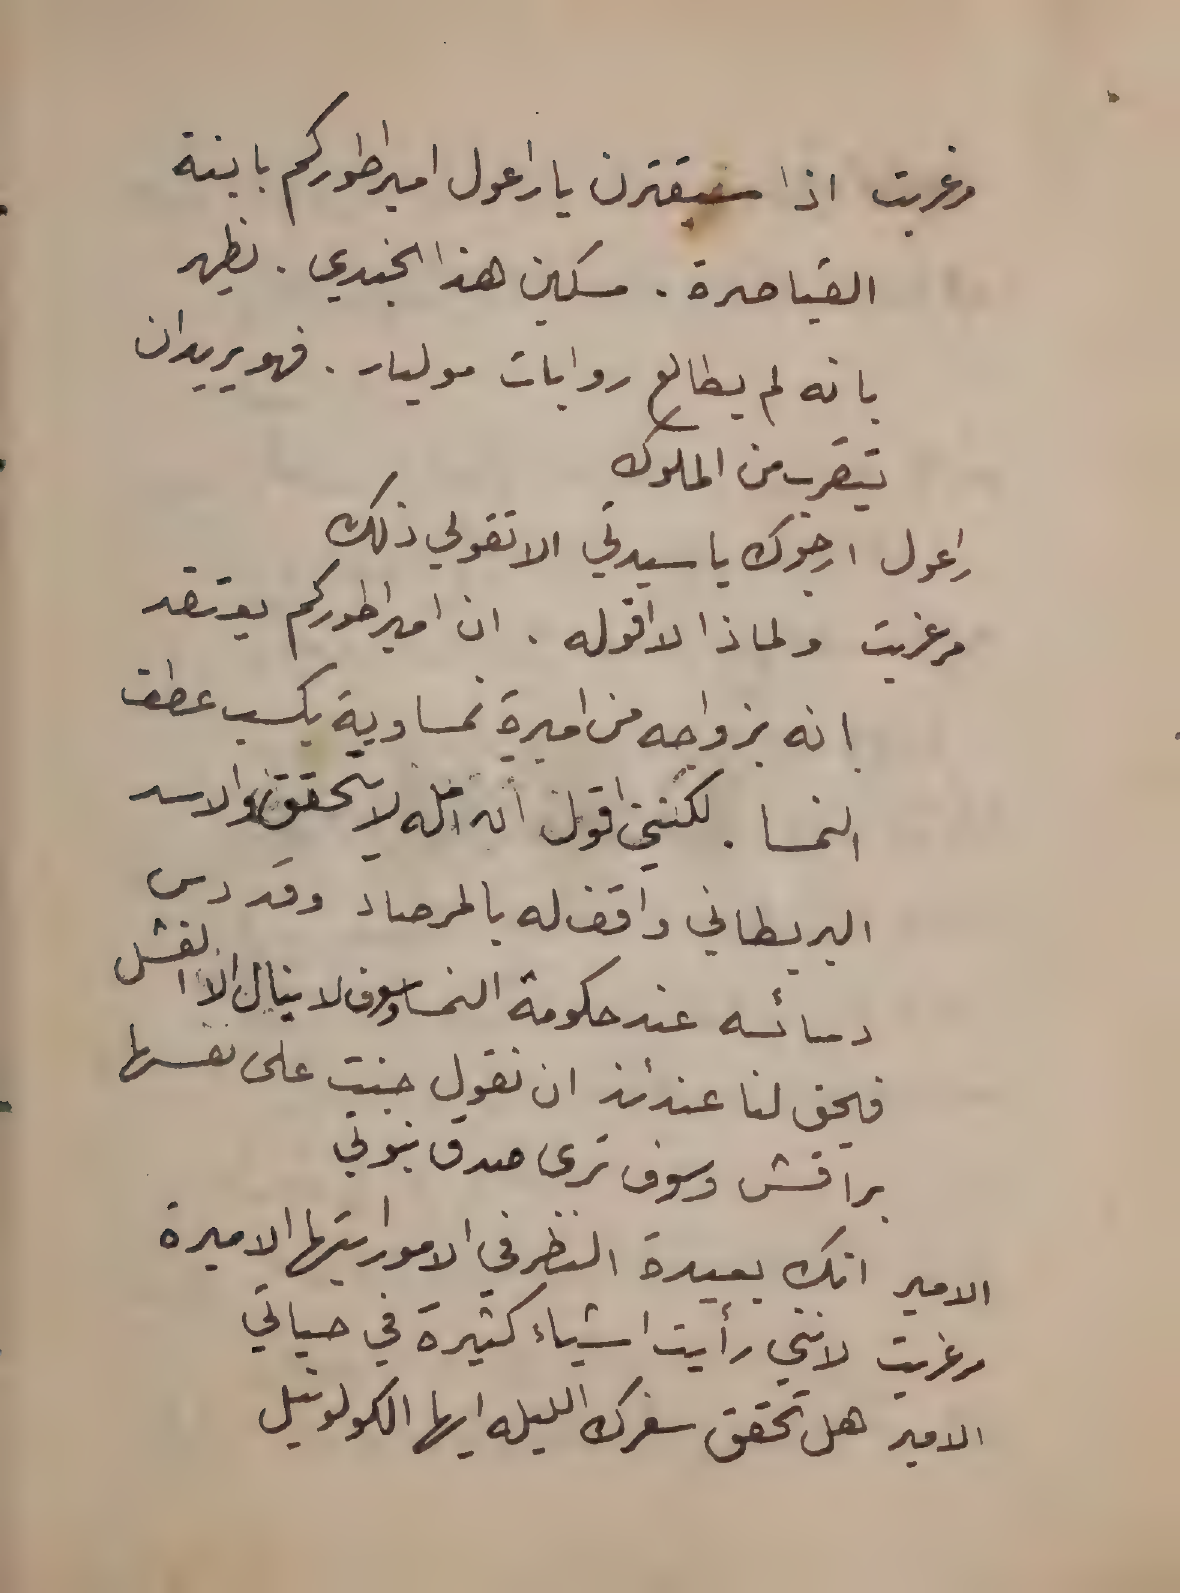 مرغريت اذا سيقترن ياراعول امبراطوركم بابنة
القياصرة . مسكين هذا الجندي . يظهر
بانه لم يطالع روايات موليار . فهو يريد ان
يتقرب من الملوك
راعول ارجوك ياسيدتي الا تقولي ذلك
مرغريت ولماذا لا اقوله . ان امبراطوركم يعتقد
انه بزواجه من اميرة نمساوية يكسب عطف
النمسا . لكنني اقول أن امله لا يتحقق والاسد
البريطاني واقف له بالمرصاد وقد دس
دسائسه عند حكومة النمسا وسوف لا ينال الا الفشل
فيحق لنا عندئذ ان نقول جنت على نفسها
براقش وسوف ترى صدق نبوتي
الامير انك بعيدة النظر في الامور ايتها الاميرة
مرغريت لانني رأيت اشياء كثيرة في حياتي
الامير هل تحقق سفرك الليله ايها الكولونيل